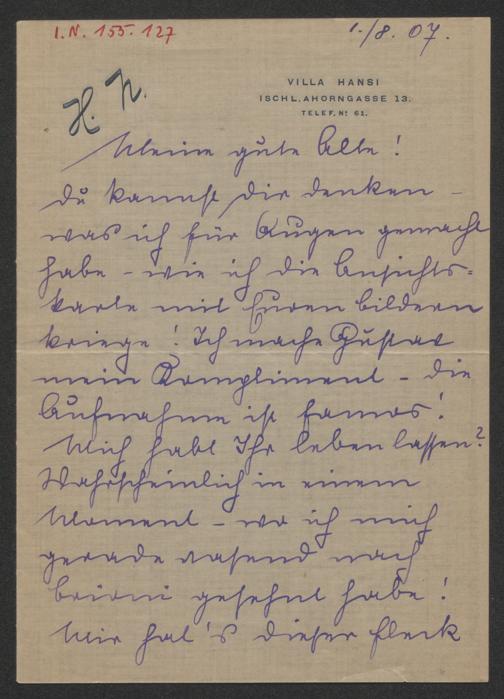 I.N. 155.127
1./8. 07.
H. N.
VILLA HANSI
ISCHL, AHORNGASSE 13.
TELEF. Nº 61.
Meine gute Alte!
Du kannst Dir denken –
was ich für Augen gemacht
habe – wie ich die Ansichts-
karte mit Euren Bildern
kriege! Ich mache Gustav
mein Kompliment – die
Aufnahme ist famos!
Mich habt Ihr leben lassen?
Wahrscheinlich in einem
Moment – wo ich mich
gerade rasend nach
Brioni gesehnt habe!
Mir hat's dieser Fleck